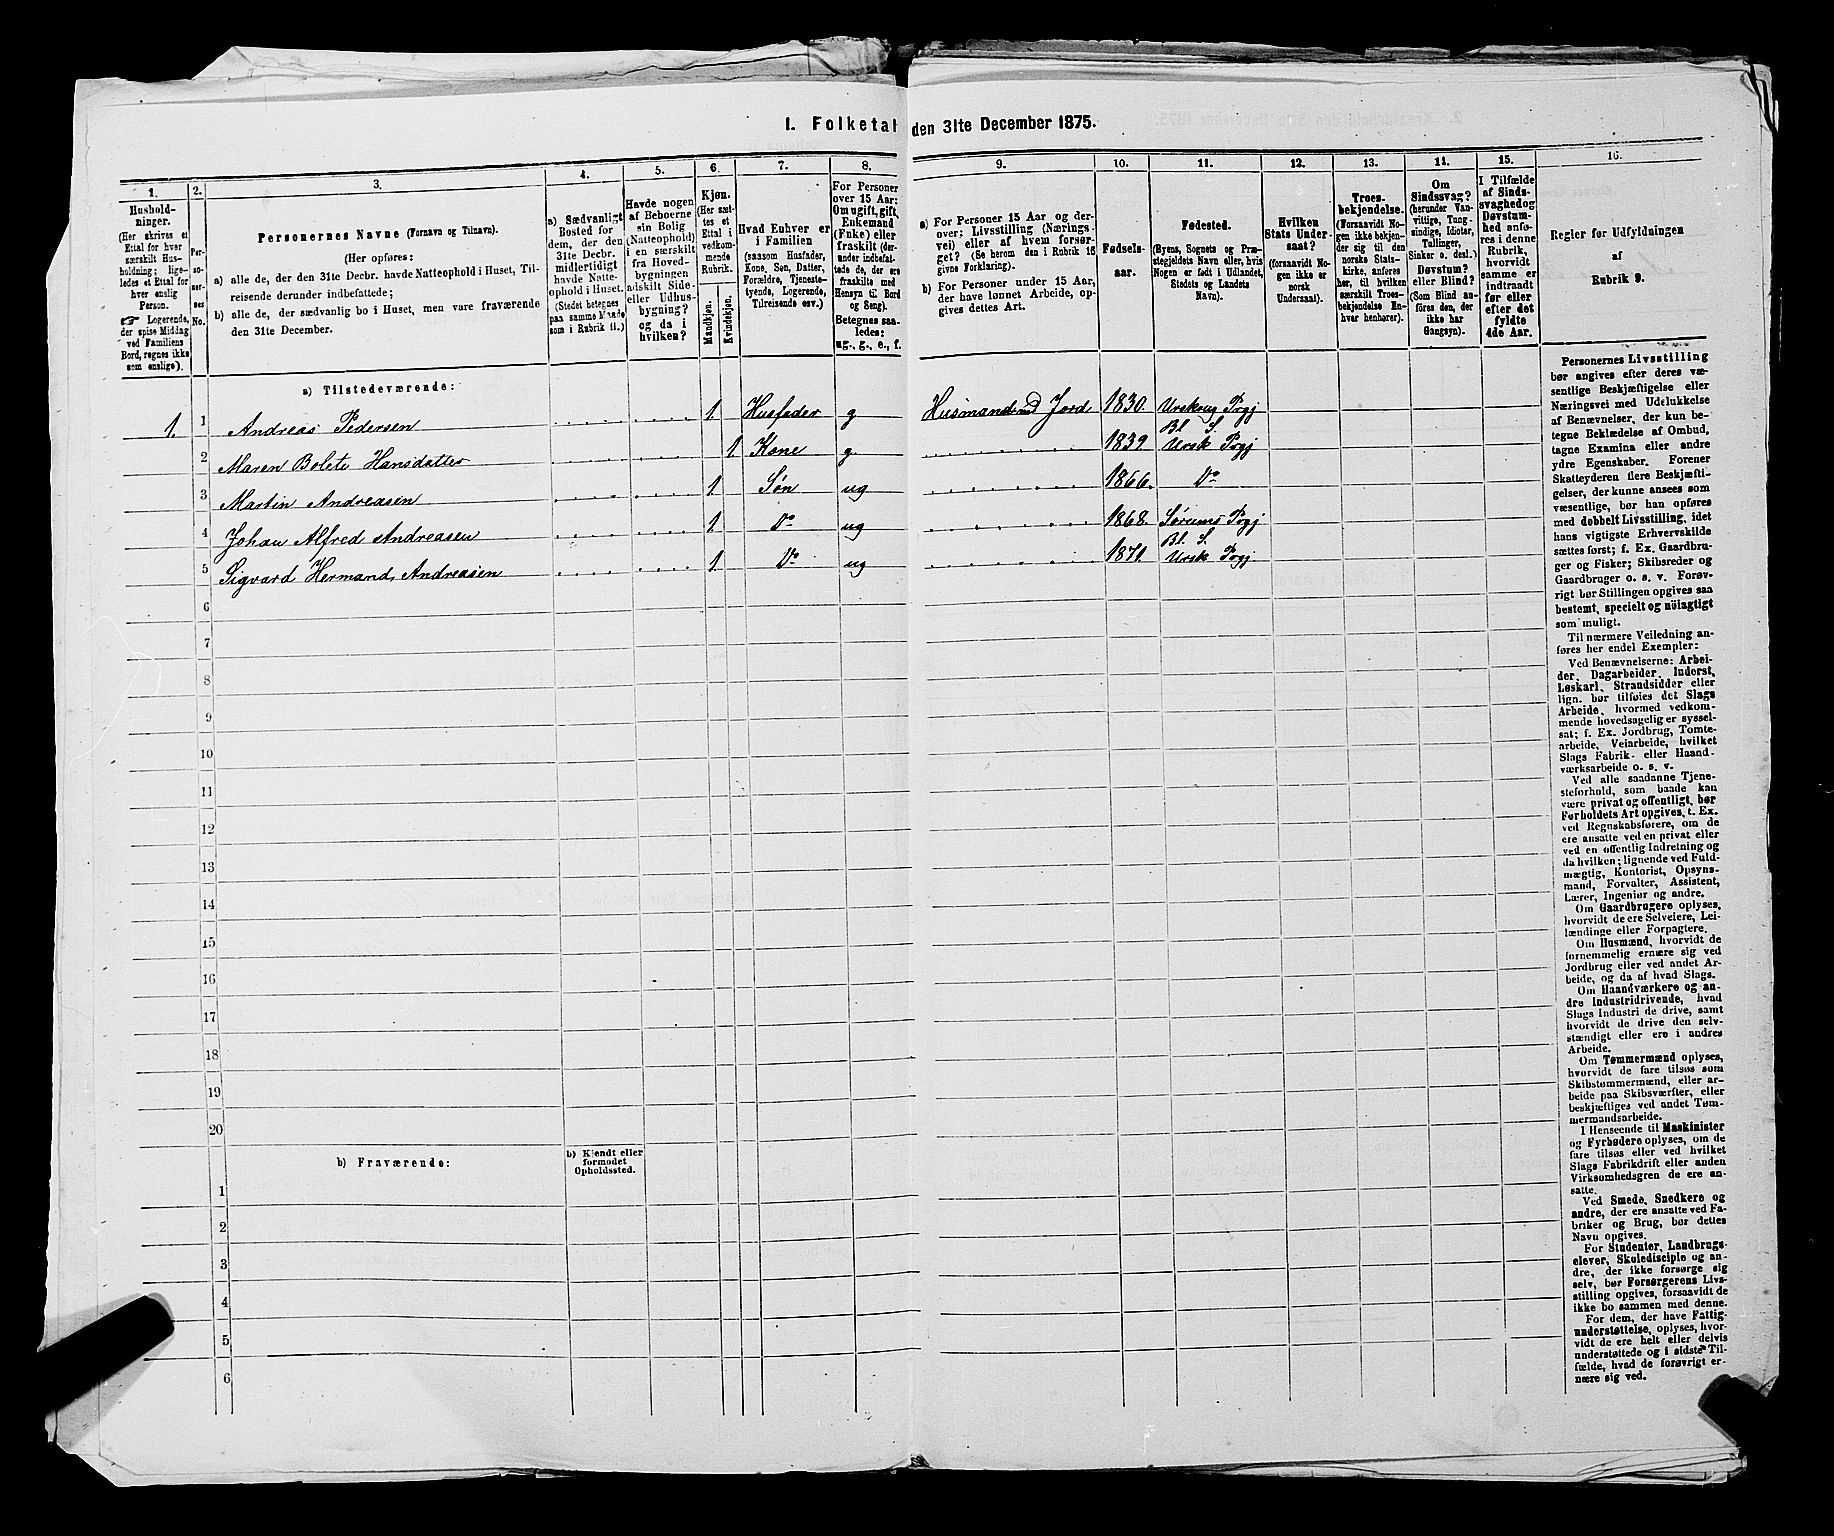 1. Folketal den 31te December 1875.
1.
Husholdninger.
(Her skrives et
Ettal for hver
særskilt Husholdning;
ligeledes et Ettal for
hver enslig
Person.
☞ Logerende,
der spise Middag
ved Familiens
Bord, regnes ikke
som enslige).
2.
Personernes
No.
3.
Personernes Navne (Fornavn og Tilnavn).
(Her opføres:
a) alle de, der den 31te Decbr. havde Natteophold i Huset, Tilreisende derunder indbefattede;
b) alle de, der sædvanlig bo i Huset, men vare fraværende
den 31te December.
4.
a) Sædvanligt
Bosted for
dem, der den
31te Decbr.
midlertidigt
havde Natteophold i Huset.
(Stedet betegnes
paa samme Maade
som i Rubrik 11.)
5.
Havde nogen
af Beboerne
sin Bolig
(Natteophold)
i en særskilt
fra Hovedbygningen
adskilt Side-
eller Udhusbygning?
og da i
hvilken?
6.
Kjøn.
(Her sættes et
Ettal i
vedkommende
Rubrik.
Mandkjøn.
Kvindekjøn.
7.
Hvad Enhver er
i Familien
(saasom Husfader,
Kone, Søn, Datter,
Forældre, Tjenestetyende, Logerende,
Tilreisende osv.)
8.
For Personer
over 15 Aar:
Om ugift, gift,
Enkemand
(Enke) eller
fraskilt (derunder indbefattede de, der ere
fraskilte med
Hensyn til Bord
og Seng).
Betegnes saaledes:
ug., g., e., f.
9.
a) For Personer 15 Aar og derover; Livsstilling (Næringsvei) eller af hvem forsørget? (Se herom den i Rubrik 16
givne Forklaring).
b) For Personer under 15 Aar,
der have lønnet Arbeide, opgives dettes Art.
10.
Fødselsaar.
11.
Fødested.
(Byens, Sognets og Præstegjeldets Navn eller, hvis
Nogen er født i Udlandet,
Stedets og Landets
Navn).
12.
Hvilken
Stats Undersaat?
(forsaavidt Nogen ikke er
norsk
Undersaat).
13.
Troesbekjendelse.
(Forsaavidt Nogen ikke bekjender sig til den
norske Statskirke, anføres
her, til hvilken
særskilt Troesbekjendelse Enhver henhører).
14.
Om
Sindssvag?
(herunder Vanvittige, Tungsindige, Idioter,
Tullinger,
Sinker o. desl.)
Døvstum?
eller Blind?
(Som Blind anføres den, der
ikke har
Gangsyn).
15.
I Tilfælde
af Sindssvaghed og
Døvstumhed anføres i denne
Rubrik,
hvorvidt
samme er
indtraadt
før eller
efter det
fyldte
4de Aar.
16.
Regler for Udfyldningen
af
Rubrik 9.
a) Tilstedeværende:
1. 1 Andreas Pedersen 1. Husfader g Husmand med Jord 1830. Urskoug Prgj
2 Maren Bolete Hansdatter 1 Kone g. 1839. Bl. S. Ursk Prgj
3 Martin Andreasen 1. Søn ug 1866. Do
4 Johan Alfred Andreasen 1. Do ug 1868. Sørums Prgj
5 Sigvard Hermand Andreasen 1. Do ug 1871. Bl. S. Ursk Prgj
6
7
8
9
10
11
12
13
14
15
16
17
18
19
20
b) Fraværende:
b) Kjendt eller
formodet
Opholdssted.
1
2
3
4
5
6
Personernes Livsstilling
bør angives efter deres væsentlige Beskjæftigelse eller
Næringsvei med Udelukkelse
af Benævnelser, der kun betegne Beklædelse af Ombud,
tagne Examina eller andre
ydre Egenskaber. Forener
Skatteyderen flere Beskjæftigelser, der kunne ansees som
væsentlige, bør han opføres
med dobbelt Livsstilling, idet
hans vigtigste Erhvervskilde
sættes først; f. Ex. Gaardbruger og Fisker; Skibsreder og
Gaardbruger o. s. v. Forøvrigt bør Stillingen opgives saa
bestemt, specielt og nøiagtigt
som muligt.
Til nærmere Veiledning anføres her endel Exempler:
Ved Benævnelserne: Arbeider, Dagarbeider, Inderst,
Løskarl, Strandsidder eller
lign. bør tilføies det Slags
Arbeide, hvormed vedkommende hovedsagelig er sysselsat; f. Ex. Jordbrug, Tomtearbeide, Veiarbeide, hvilket
Slags Fabrik- eller Haandværksarbeide o. s. v.
Ved alle saadanne Tjenesteforhold, som baade kan
være privat og offentligt, bør
Forholdets Art opgives, t. Ex.
ved Regnskabsførere, om de
ere ansatte ved en privat eller
ved en offentlig Indretning og
da hvilken; lignende ved Fuldmægtig, Kontorist, Opsynsmand, Forvalter, Assistent,
Lærer, Ingeniør og andre.
Om Gaardbrugere oplyses,
hvorvidt de ere Selveiere, Leilændinge eller Forpagtere.
Om Husmænd, hvorvidt de
fornemmelig ernære sig ved
Jordbrug eller ved andet Arbeide, og da af hvad Slags.
Om Haandværkere og andre Industridrivende, hvad
Slags Industri de drive, samt
hvorvidt de drive den selvstændigt eller ere i andres
Arbeide.
Om Tømmermænd oplyses,
hvorvidt de fare tilsøs som
Skibstømmermænd, eller arbeide paa Skibsværfter, eller
beskjæftiges ved andet Tømmermandsarbeide.
I Henseende til Maskinister
og Fyrbødere oplyses, om de
fare tilsøs eller ved hvilket
Slags Fabrikdrift eller anden
Virksomhedsgren de ere ansatte.
Ved Smede, Snedkere og
andre, der ere ansatte ved Fabriker og Brug, bør dettes
Navn opgives.
For Studenter, Landbrugselever, Skoledisciple og andre, der ikke forsørge sig
selv, bør Forsørgerens Livsstilling opgives, forsaavidt de
ikke bo sammen med denne.
For dem, der have Fattigunderstøttelse, oplyses, hvorvidt de ere helt eller delvis
understøttede og i sidste Tilfælde, hvad de forøvrigt ernære sig ved.